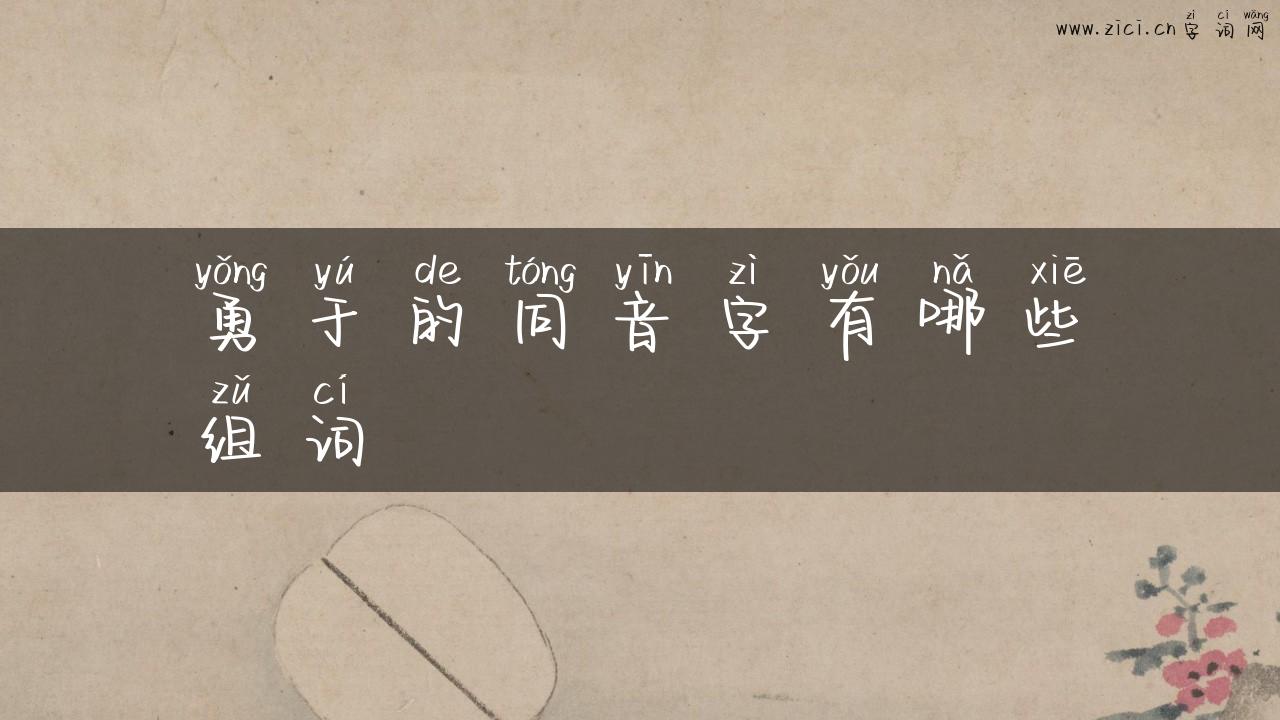 zì cí wǎng
www.zici.cn字词网
yǒng yú de tóng yīn zì yǒu nǎ xiē
勇于的同音字有哪些
zǔ cí
组词